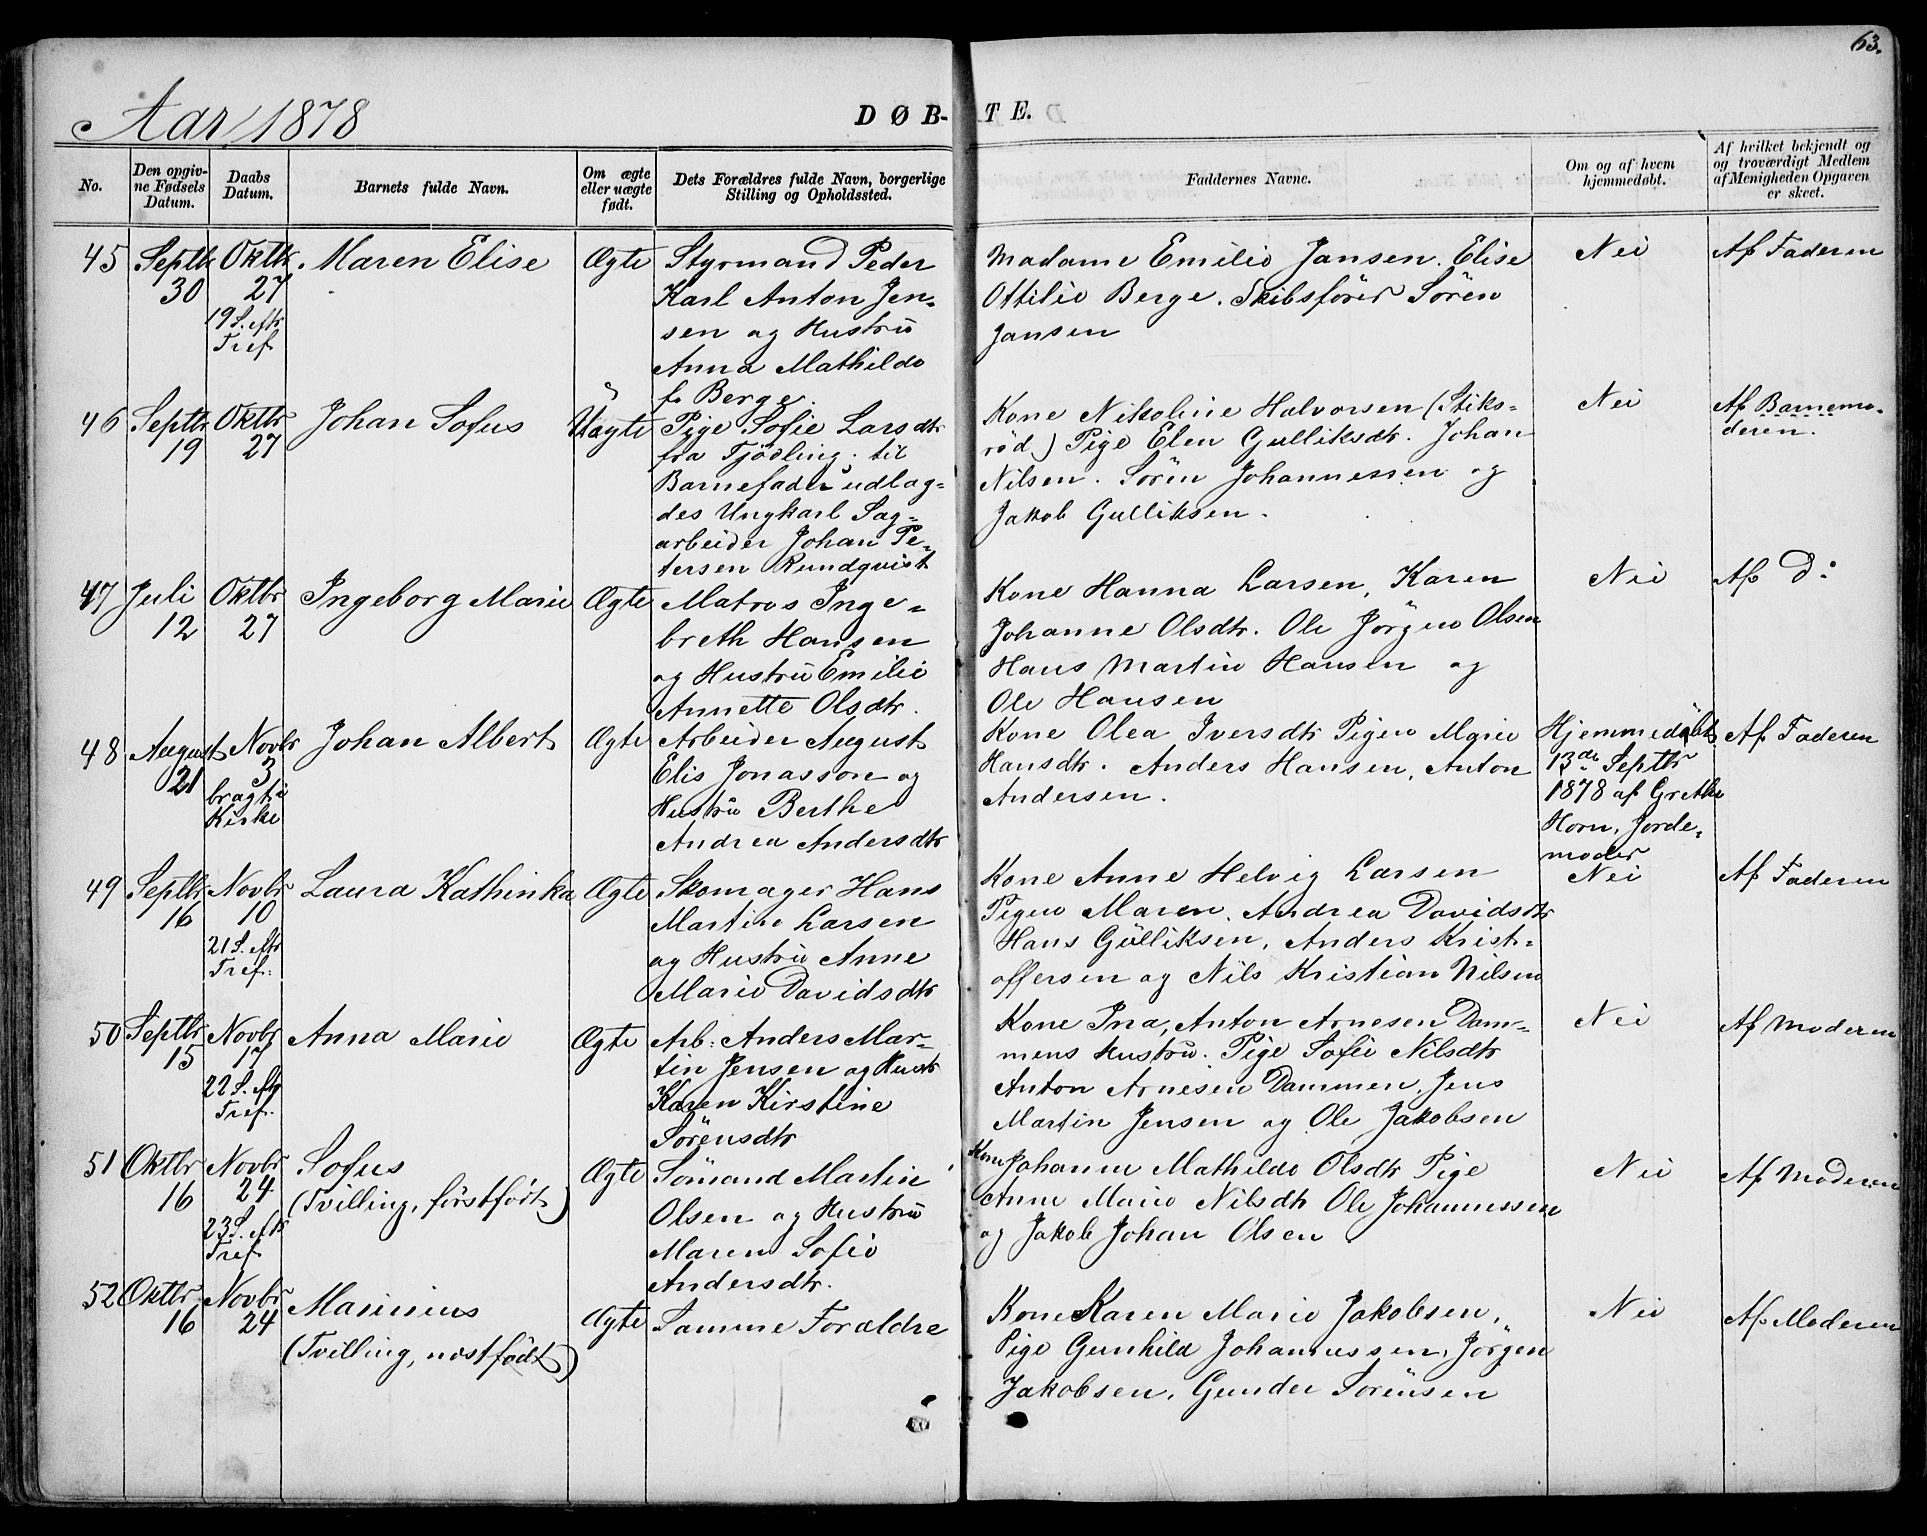 63.
Aar 1878
DØB-TE.
No.
Den opgiv-
ne Fødsels
Datum.
Daabs
Datum.
Barnets fulde Navn.
Om ægte
eller uægte
født.
Dets Forældres fulde Navn, borgerlige
Stilling og Opholdssted.
Faddernes Navne.
Om og af hvem
hjemmedøbt.
Af hvilket bekjendt og
og troværdigt Medlem
af Menigheden Opgaven
er skeet.
45
Septbr
30
Oktbr
27
19 S. eftr
Tref.
Maren Elise
Ægte
Styrmand Peder
Karl Anton Jen-
sen og Hustru
Anna Mathilde
f. Berge.
Madame Emilie Jansen. Elise
Ottilie Berge. Skibsfører Sören
Jansen
Nei
Af Faderen
46
Septbr
19
Oktbr
27
Johan Sofus
Uægte
Pige Sofie Larsdtr
fra Tjödling. til
Barnefader udlag-
des Ungkarl Sag-
arbeider Johan Pe-
tersen Rundqvist
Kone Nikoline Halvorsen (Stiks-
röd) Pige Elen Gulliksdtr. Johan
Nilsen. Sören Johannessen og
Jakob Gulliksen.
Nei
Af Barnemo-
deren.
47
Juli
12
Oktbr
27
Ingeborg Marie
Ægte
Matros Inge-
breth Hansen
og Hustru Emilie
Annette Olsdtr.
Kone Hanna Larsen, Karen
Johanne Olsdtr. Ole Jörgen Olsen
Hans Martin Hansen og
Ole Hansen
Nei
Af Do
48
August
21
Novbr
3
bragt i
Kirke
Johan Albert
Ægte
Arbeider August
Elis Jonasson og
Hustru Berthe
Andrea Andersdtr
Kone Olea Iversdtr Pigen Marie
Hansdtr. Anders Hansen, Anton
Andersen.
Hjemmedöbt
13de Septbr
1878 af Grethe
Horn, Jorde-
moder
Af Faderen
49
Septbr
16
Novbr
10
21 S. eftr
Tref.
Laura Kathinka
Ægte
Skomager Hans
Martin Larsen
og Hustru Anne
Marie Davidsdtr
Kone Anne Helvig Larsen
Pigen Maren Andrea Davidsdtr
Hans Gulliksen, Anders Krist-
offersen og Nils Kristian Nilsen
Nei
Af Faderen
50
Septbr
15
Novbr
17
22 S. eftr
Tref.
Anna Marie
Ægte
Arb: Anders Mar-
tin Jensen og Hustr
Karen Kirstine
Sörensdtr
Kone Ina, Anton Arnesen Dam-
mens Hustru. Pige Sofie Nilsdtr
Anton Arnesen Dammen, Jens
Martin Jensen og Ole Jakobsen
Nei
Af Moderen
51
Oktbr
16
Novbr
24
23 S. eftr
Tref
Sofus
(Tvilling, förstfödt)
Ægte
Sömand Martin
Olsen og Hustru
Maren Sofie
Andersdtr.
Kone Johanne Mathilde Olsdtr Pige
Anne Marie Nilsdtr Ole Johannessen
og Jakob Johan Olsen
Nei
Af Moderen
52
Oktbr
16
Novbr
24
Marinius
(Tvilling, nestfödt)
Ægte
Samme Forældre
Kone Karen Marie Jakobsen,
Pige Gunhild Johannessen, Jörgen
Jakobsen, Gunder Sorensen
Nei
Af Moderen